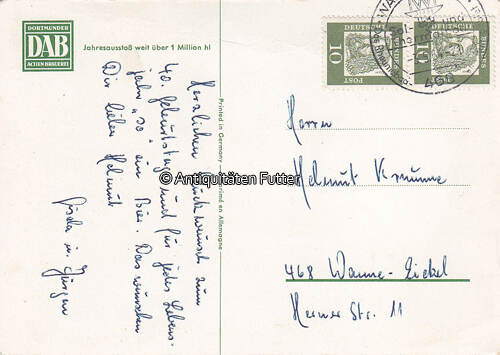 DORTMUNDER
DAB
ACTIEN BRAUEREI
Jahresausstoß weit über 1 Million hl
Herzlichen Glückwunsch zum
40. Geburtstag und für jedes Lebens-
jahr "so" ein Bier. Das wünschen
Dir lieber Helmut
Gisela u. Jürgen
Printed in Germany
Imprimé en Allemagne
© Antiquitäten Futter
10
POST
DEUTSCHE
10
DEUTSCHE
BUNDES
Herrn
Helmut
468 Wanne-Eickel
Herner Str. 11